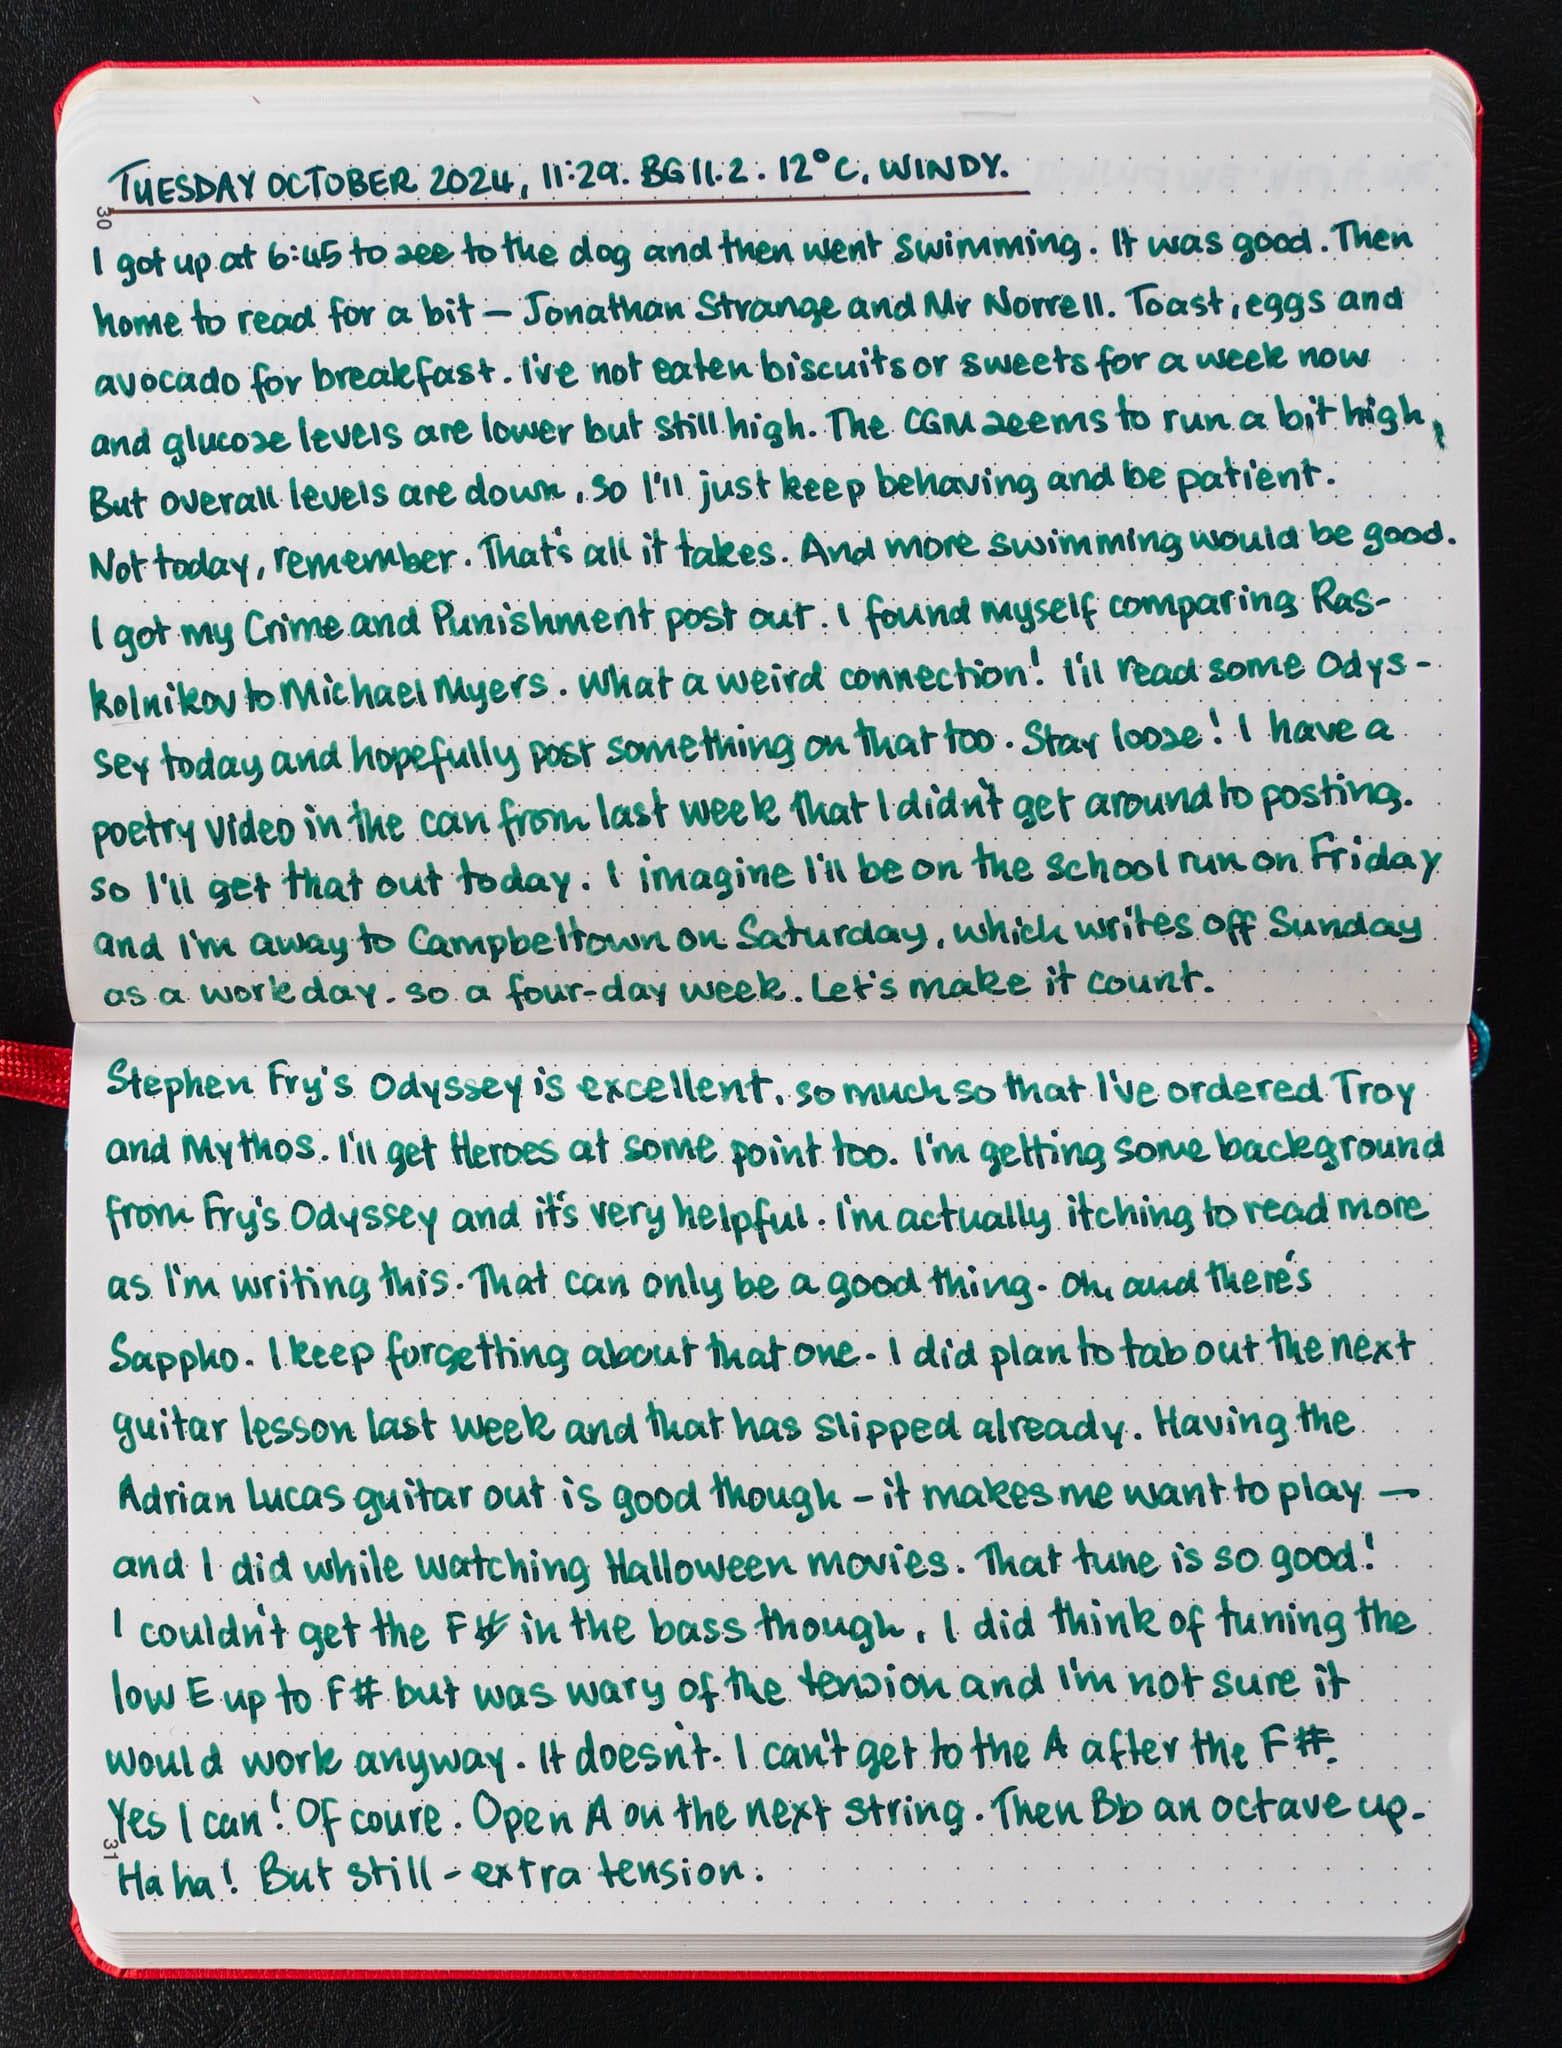 TUESDAY OCTOBER 2024, 11:29. BG 11.2. 12°C, WINDY.
30
I got up at 6:45 to see to the dog and then went swimming. It was good. Then
home to read for a bit – Jonathan Strange and Mr Norrell. Toast, eggs and
avocado for breakfast. I've not eaten biscuits or sweets for a week now
and glucose levels are lower but still high. The CGM seems to run a bit high,
But overall levels are down, so I'll just keep behaving and be patient.
Not today, remember. That's all it takes. And more swimming would be good.
I got my Crime and Punishment post out. I found myself comparing Ras-
kolnikov to Michael Myers. What a weird connection! I'll read some Odys-
sey today and hopefully post something on that too. Stay loose! I have a
poetry video in the can from last week that I didn't get around to posting.
so I'll get that out today. I imagine I'll be on the school run on Friday
and I'm away to Campbeltown on Saturday, which writes off Sunday
as a work day. so a four-day week. Let's make it count.
Stephen Fry's Odyssey is excellent, so much so that I've ordered Troy
and Mythos. I'll get Heroes at some point too. I'm getting some background
from Fry's Odyssey and it's very helpful. I'm actually itching to read more
as I'm writing this. That can only be a good thing. Oh, and there's
Sappho. I keep forgetting about that one. I did plan to tab out the next
guitar lesson last week and that has slipped already. Having the
Adrian Lucas guitar out is good though – it makes me want to play –
and I did while watching Halloween movies. That tune is so good!
I couldn't get the F# in the bass though. I did think of tuning the
low E up to F# but was wary of the tension and I'm not sure it
would work anyway. It doesn't. I can't get to the A after the F#.
Yes I can! Of coure. Open A on the next string. Then Bb an octave up.
31
Ha ha! But still – extra tension.